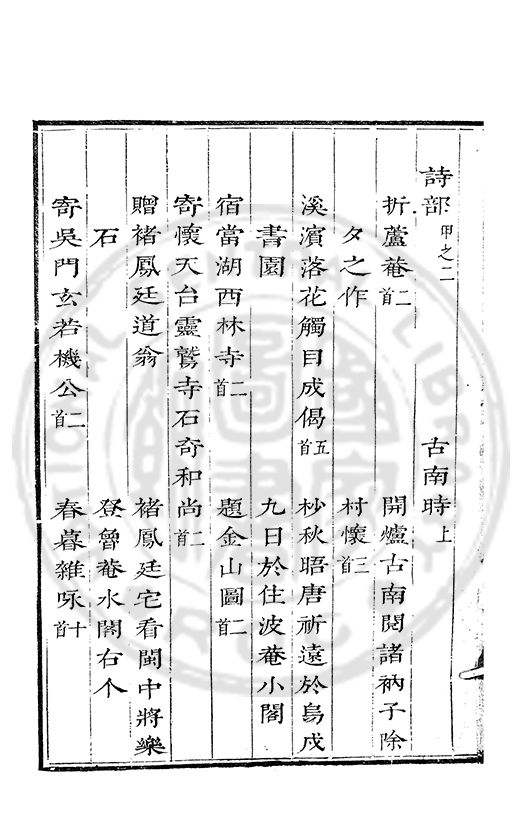 詩部甲之二 古南時上
折蘆菴二首 開爐古南閱諸衲子除
夕之作 村懷三首
溪濱落花觸目成偈五首 杪秋晤唐祈遠於烏戍
書園 九日於住波菴小閣
宿當湖西林寺二首 題金山圖二首
寄懷天台靈鷲寺石奇和尚二首
贈褚鳳廷道翁 褚鳳廷宅看閩中將樂
石 登魯菴水閣右个
寄吳門玄若機公二首 春暮雜咏十首